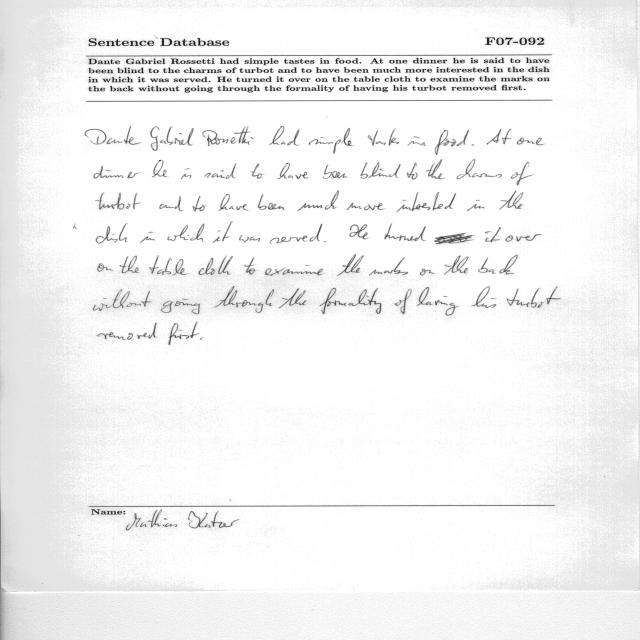 Sentence Database F07-092
Dante Gabriel Rossetti had simple tastes in food. At one dinner he is said to have
been blind to the charms of turbot and to have been much more interested in the dish
in which it was served. He turned it over on the table cloth to examine the marks on
the back without going through the formality of having his turbot removed first.
Dante Gabriel Rossetti had simple tastes in food. At one
dinner he is said to have been blind to the charms of
turbot and to have been much more interested in the
dish in which it was served. He turned it over
on the table cloth to examine the marks on the back
without going through the formality of having his turbot
removed first.
Name: Mathias